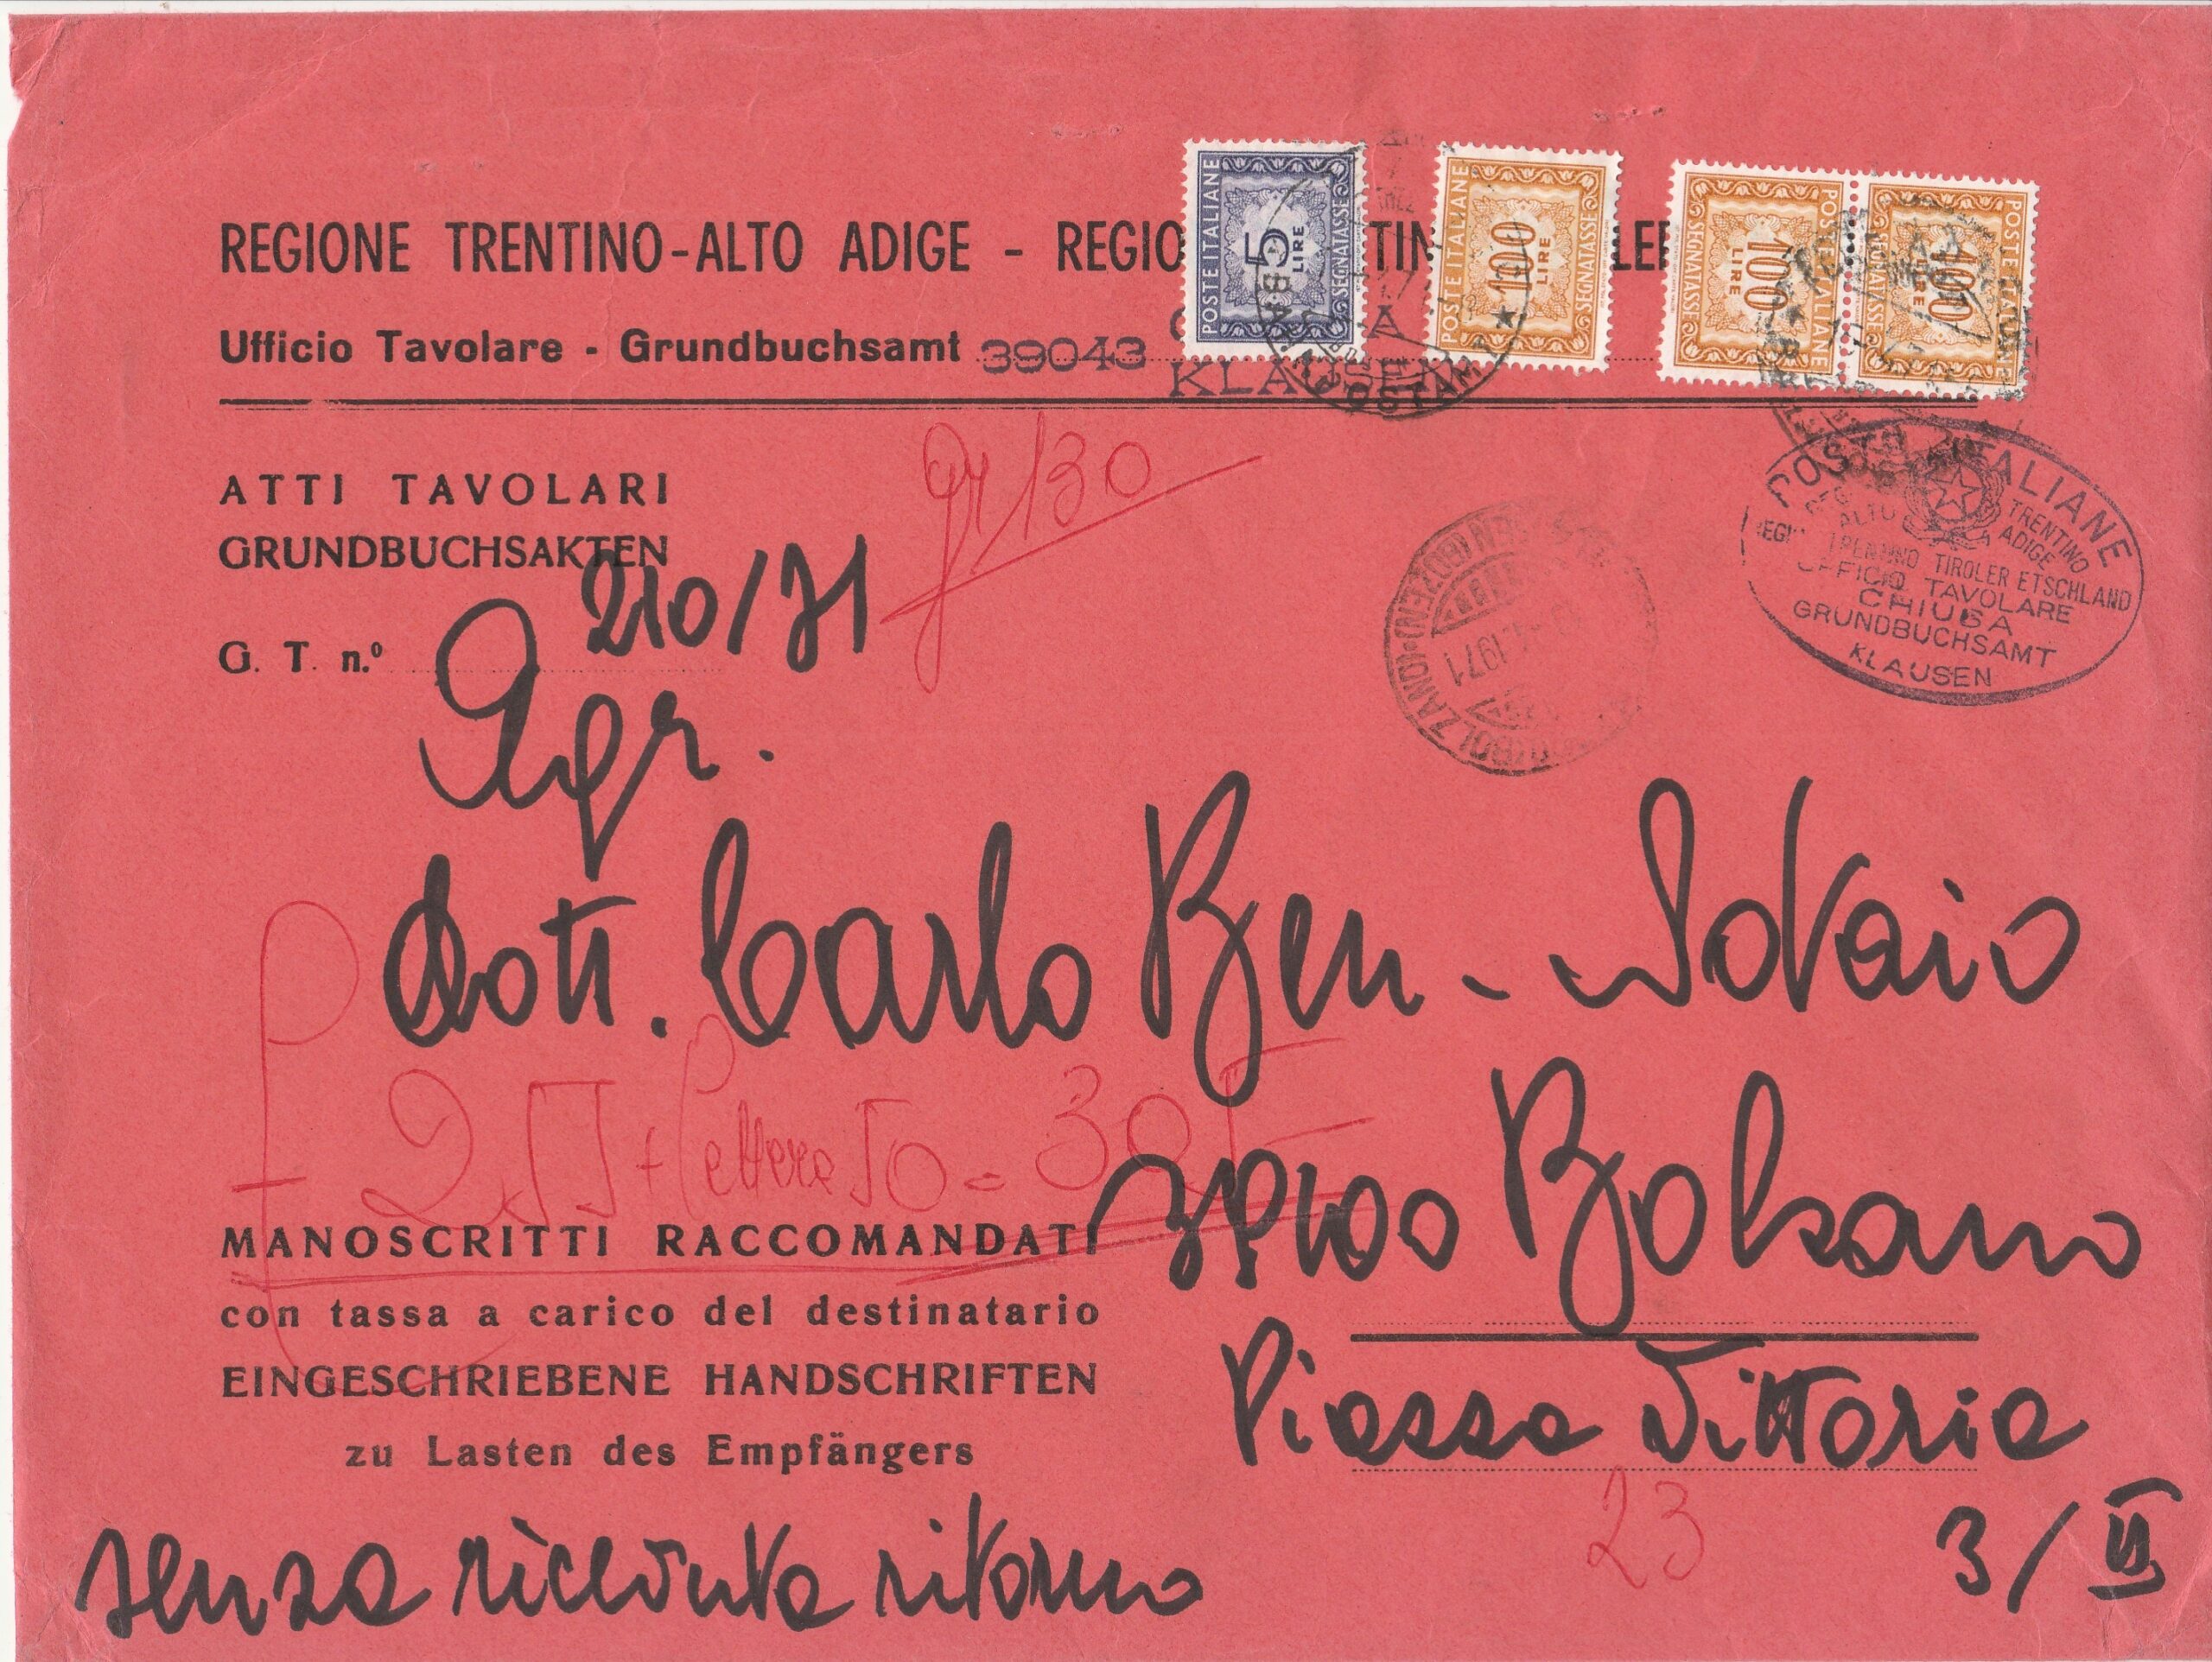 REGIONE TRENTINO-ALTO ADIGE - REGIO TIN LER
POSTE ITALIANE
5
LIRE
SEGNATASSE
POSTE ITALIANE
100
LIRE
SEGNATASSE
POSTE ITALIANE
100
LIRE
SEGNATASSE
POSTE ITALIANE
100
LIRE
SEGNATASSE
Ufficio Tavolare - Grundbuchsamt 39043
KLAUSEN
ATTI TAVOLARI
GRUNDBUCHSAKTEN
G. T. n.º 210/71
gr 130
1971
BOLZANO (BOZEN)
POSTE ITALIANE
TRENTINO
ALTO ADIGE
TRENTINO TIROLER ETSCHLAND
UFFICIO TAVOLARE
CHIUSA
GRUNDBUCHSAMT
KLAUSEN
Egr.
dott. Carlo Ben - Notaio
255 + lettera 50 = 305
39100 Bolzano
MANOSCRITTI RACCOMANDATI
con tassa a carico del destinatario
EINGESCHRIEBENE HANDSCHRIFTEN
zu Lasten des Empfängers
Piazza Vittoria
23
3/II
senza ricevuta ritorno